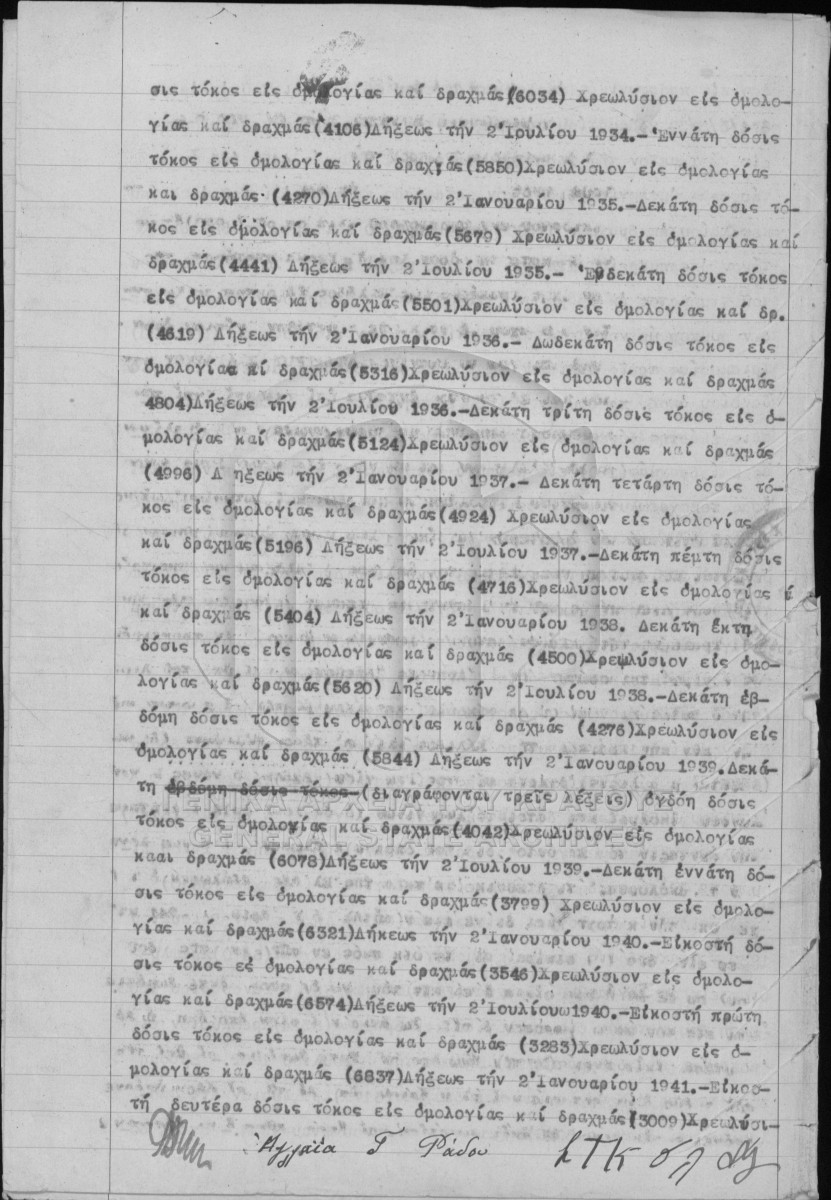 σις τόκος εἰς ὁμολογίας καί δραχμάς (6034) Χρεωλύσιον εἰς ὁμολο-
γίας καί δραχμάς(4106)Λήξεως τήν 2'Ιουλίου 1934.-'Εννάτη δόσις
τόκος εἰς ὁμολογίας καί δραχμάς(5850)Χρεωλύσιον εἰς ὁμολογίας
και δραχμάς (4270)Λήξεως τήν 2'Ιανουαρίου 1935.-Δεκάτη δόσις τό-
κος εἰς ὁμολογίας καί δραχμάς(5679) Χρεωλύσιον εἰς ὁμολογίας καί
δραχμάς(4441) Λήξεως τήν 2'Ιουλίου 1935.- 'Ενδεκάτη δόσις τόκος
εἰς ὁμολογίας καί δραχμάς(5501)Χρεωλύσιον εἰς ὁμολογίας καί δρ.
(4619) Λήξεως τήν 2'Ιανουαρίου 1936.- Δωδεκάτη δόσις τόκος εἰς
ὁμολογίας κί δραχμάς(5316)Χρεωλύσιον εἰς ὁμολογίας καί δραχμάς
4804)Λήξεως τήν 2'Ιουλίου 1936.-Δεκάτη τρίτη δόσις τόκος εἰς ὁ-
μολογίας καί δραχμάς(5124)Χρεωλύσιον εἰς ὁμολογίας καί δραχμάς
(4996) Λ ηξεως τήν 2'Ιανουαρίου 1937.- Δεκάτη τετάρτη δόσις τό-
κος εἰς ὁμολογίας καί δραχμάς(4924) Χρεωλύσιον εἰς ὁμολογίας
καί δραχμάς(5196) Λήξεως τήν 2'Ιουλίου 1937.-Δεκάτη πέμτη δόσις
τόκος εἰς ὁμολογίας καί δραχμάς (4716)Χρεωλύσιον εἰς ὁμολογίας
καί δραχμάς (5404) Λήξεως τήν 2'Ιανουαρίου 1938. Δεκάτη ἑκτη
δόσις τόκος εἰς ὁμολογίας καί δραχμάς (4500)Χρεωλύσιον εἰς ὁμο-
λογίας καί δραχμάς(5620) Λήξεως τήν 2'Ιουλίου 1938.-Δεκάτη ἑβ-
δόμη δόσις τόκος εἰς ὁμολογίας καί δραχμάς (4276)Χρεωλύσιον εἰς
ὁμολογίας καί δραχμάς (5844) Λήξεως τήν 2'Ιανουαρίου 1939.Δεκά-
τη ἑβδόμη δόσις τόκος (διαγράφονται τρεῖς λέξεις) ὀγδόη δόσις
τόκος εἰς ὁμολογίας καί δραχμάς(4042)Χρεωλύσιον εἰς ὁμολογίας
κααι δραχμάς (6078)Λήξεως τήν 2'Ιουλίου 1939.-Δεκάτη ἐννάτη δό-
σις τόκος εἰς ὁμολογίας καί δραχμάς(3799) Χρεωλύσιον εἰς ὁμολο-
γίας καί δραχμάς(6321)Λήκεως τήν 2'Ιανουαρίου 1940.-Εἰκοστή δό-
σις τόκος ες ὁμολογίας καί δραχμάς(3546)Χρεωλύσιον εἰς ὁμολο-
γίας καί δραχμάς(6574)Λήξεως τήν 2'Ιουλίουω1940.-Εἰκοστή πρώτη
δόσις τόκος εἰς ὁμολογίας καί δραχμάς (3283)Χρεωλύσιον εἰς ὁ-
μολογίας καί δραχμάς (6837)Λήξεως τήν 2'Ιανουαρίου 1941.-Εἰκοσ-
τή δευτέρα δόσις τόκος εἰς ὁμολογίας καί δραχμάς(3009)Χρεωλύσι-
Ἀγλαΐα Γ Ράδου
ΓΕΝΙΚΑ ΑΡΧΕΙΑ ΤΟΥ ΚΡΑΤΟΥΣ
GENERAL STATE ARCHIVES